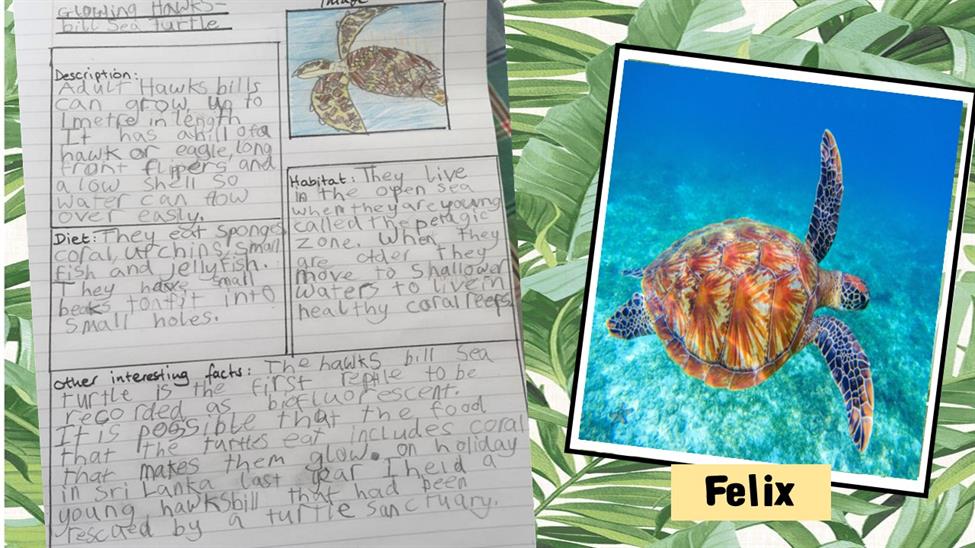 GLOWING HAWKS-
bill Sea Turtle
Image
Description:
Adult Hawks bills
can grow up to
1 metre in length
It has a bill of a
hawk or eagle, long
front flipers and
a low shell so
water can flow
over easily.
Diet: They eat sponges
coral, urchins, small
fish and jellyfish.
They have small
beaks to fit into
small holes.
Habitat: They live
in the open sea
when they are young
called the pelagic
zone. When they
are older they
move to shallower
waters to live in
healthy coral reefs.
Other interesting facts: The hawks bill sea
turtle is the first reptile to be
recorded as biofluorescent.
It is possible that the food
that the turtles eat includes coral
that makes them glow. on holiday
in Sri Lanka last year I held a
young hawksbill that had been
rescued by a turtle sanctuary.
Felix